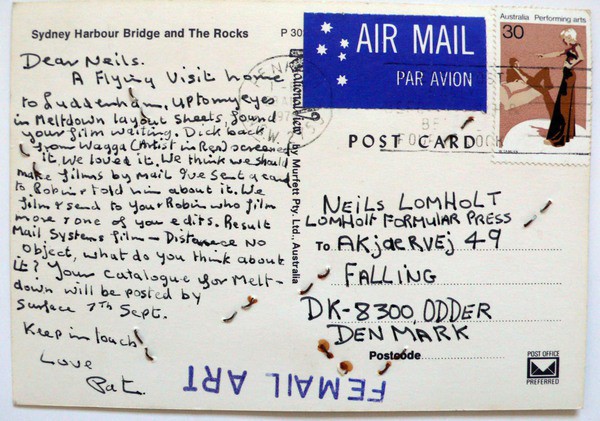 Sydney Harbour Bridge and The Rocks
Dear Neils.
A Flying Visit home
to Luddenham, Up to my eyes
in Meltdown layout sheets, found
your film waiting. Dick back
from Wagga (Artist in Res) screened
it, We loved it. We think we should
make films by mail I've sent a card
to Robin & told him about it. We
film & send to you & Robin who film
more & one of you edits. Result
Mail Systems film – Distance no
object, what do you think about
it? Your Catalogue for Melt-
down will be posted by
Surface 7th Sept.
Keep in touch
Love
Pat.
FEMAIL ART
by Murfett Pty. Ltd., Australia
AIR MAIL
PAR AVION
Australia Performing arts
30
POST CARD
NEILS LOMHOLT
LOMHOLT FORMULAR PRESS
TO AKjAERVEj 49
FALLING
DK-8300, ODDER
DENMARK
Postcode
POST OFFICE
PREFERRED